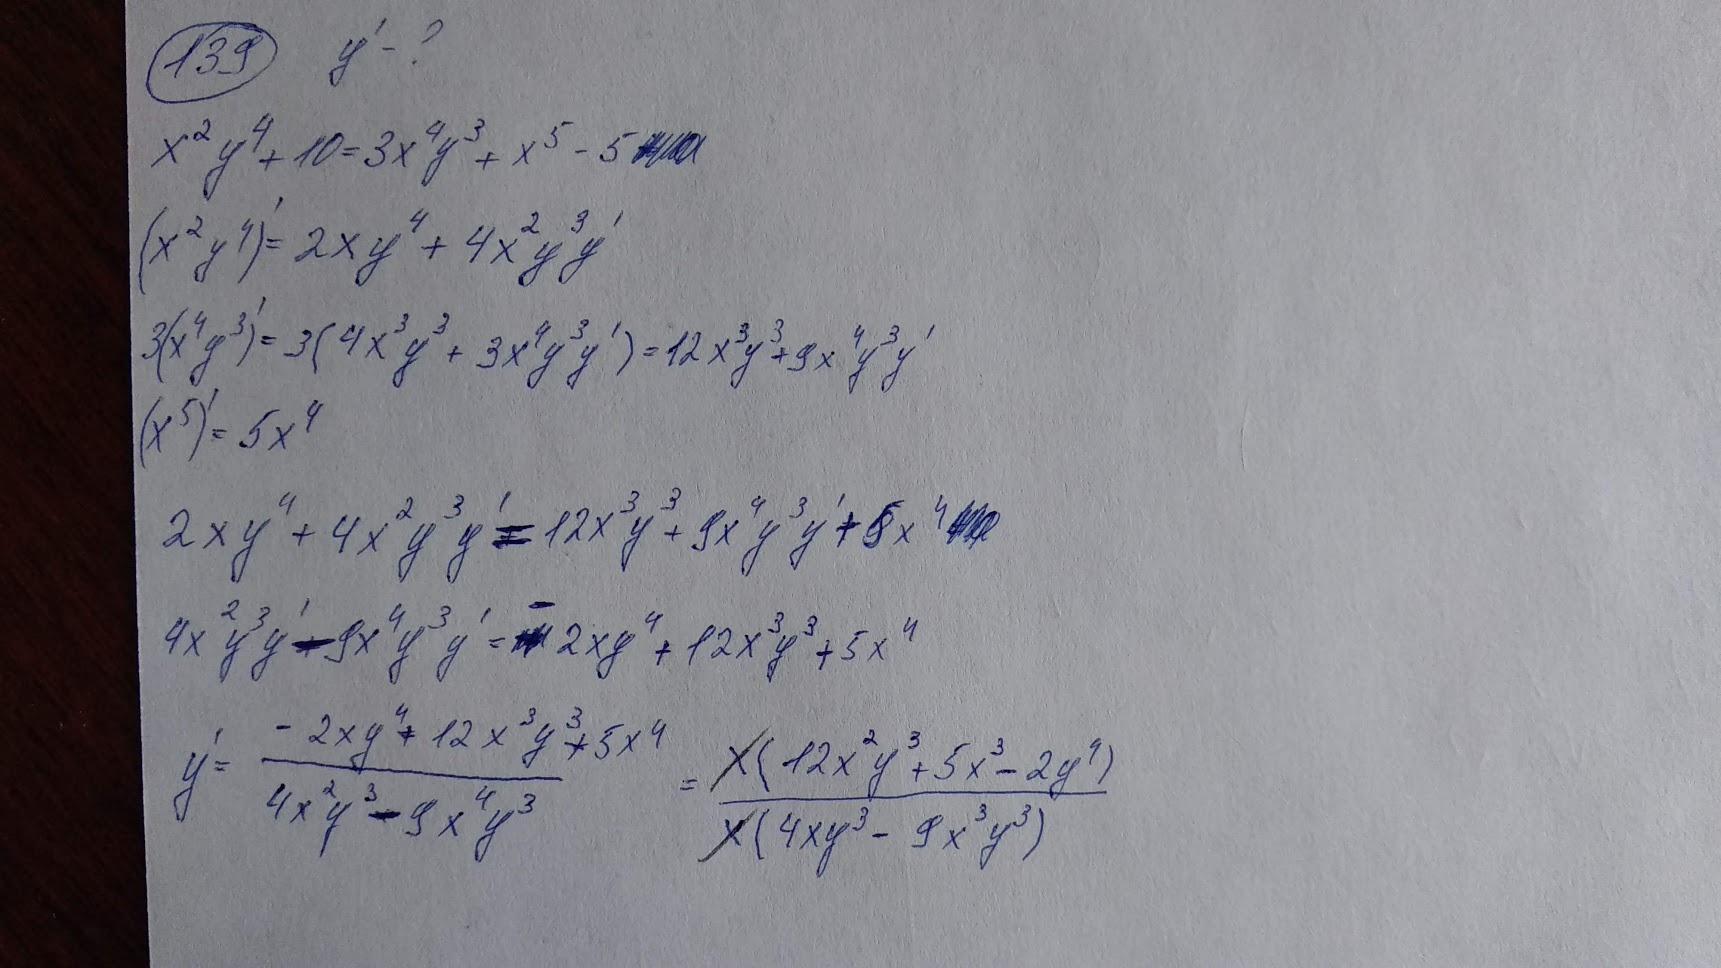 139 y' - ?
x²y⁴ + 10 = 3x⁴y³ + x⁵ - 5
(x²y⁴)' = 2xy⁴ + 4x²y³y'
3(x⁴y³)' = 3(4x³y³ + 3x⁴y³y') = 12x³y³ + 9x⁴y³y'
(x⁵)' = 5x⁴
2xy⁴ + 4x²y³y' = 12x³y³ + 9x⁴y³y' + 5x⁴
4x²y³y' - 9x⁴y³y' = -2xy⁴ + 12x³y³ + 5x⁴
y' = (-2xy⁴ + 12x³y³ + 5x⁴)/(4x²y³ - 9x⁴y³) = x(12x²y³ + 5x³ - 2y⁴)/x(4xy³ - 9x³y³)